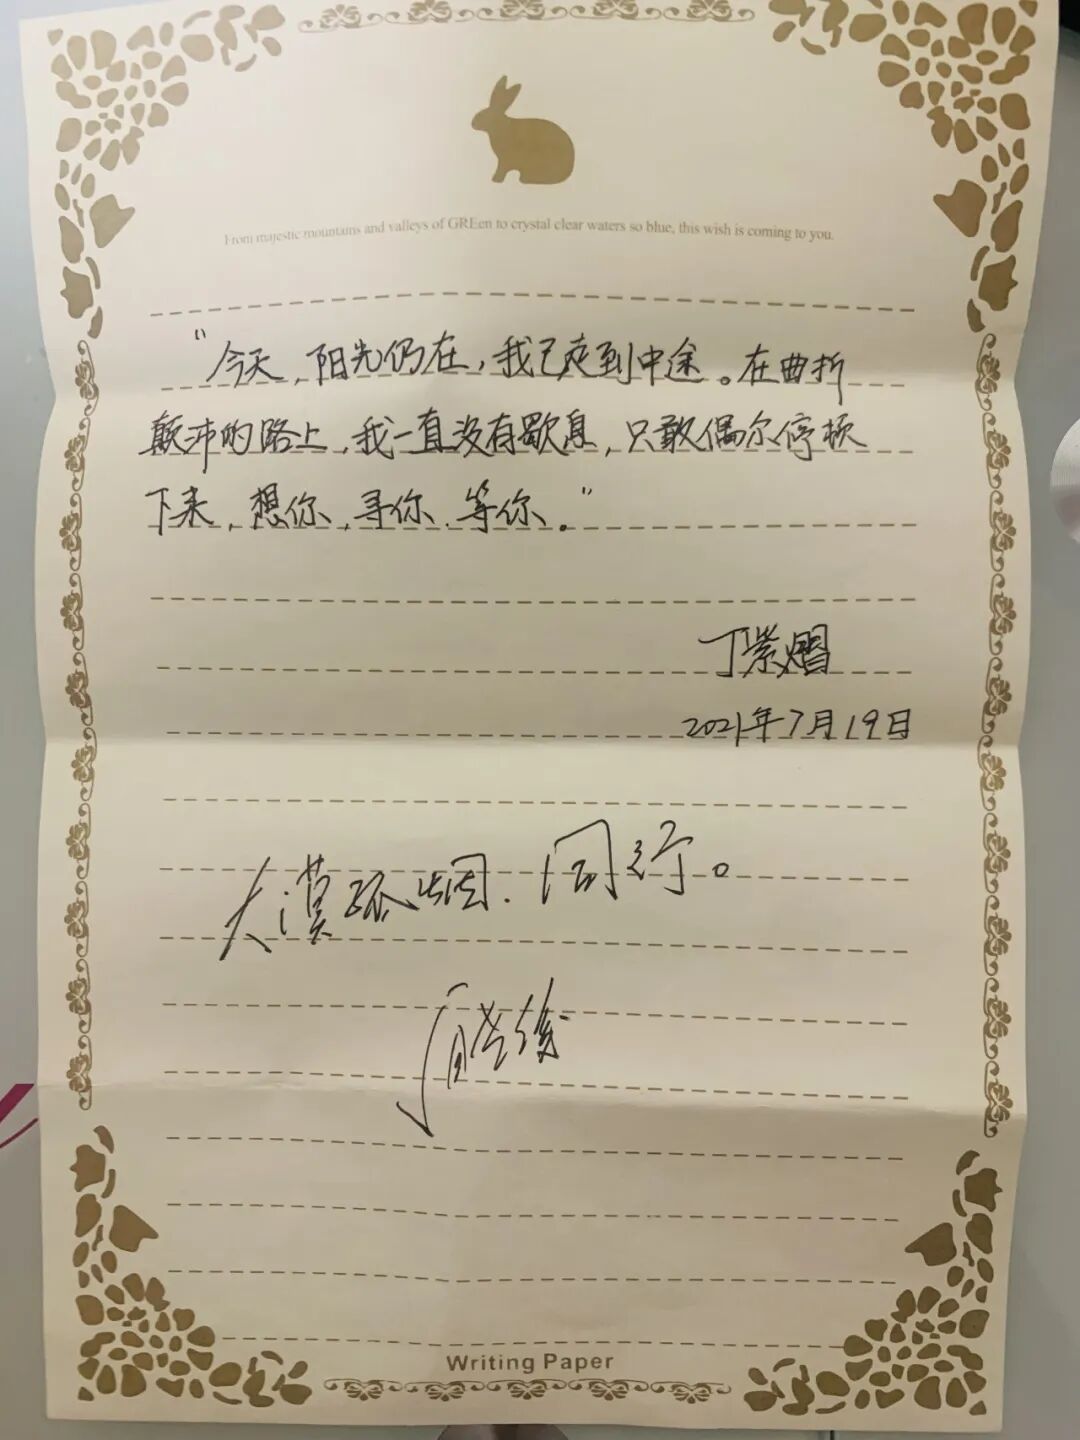 From majestic mountains and valleys of GREen to crystal clear waters so blue, this wish is coming to you.
“今天，阳光仍在，我已走到中途。在曲折
颠沛的路上，我一直没有歇息，只敢偶尔停顿
下来，想你，寻你，等你。”
丁紫熠
2021年7月19日
大漠孤烟．同行。
Writing Paper